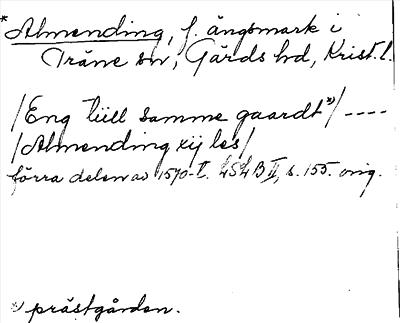 * Almending, f. ängsmark i
Träne sn, Gärds hd, Krist. l.
/Eng till samme gaardt x)/ ----
/Almending xij les/
förra delen av 1570-t. LSLB II, s. 155. orig.
x) prästgården.